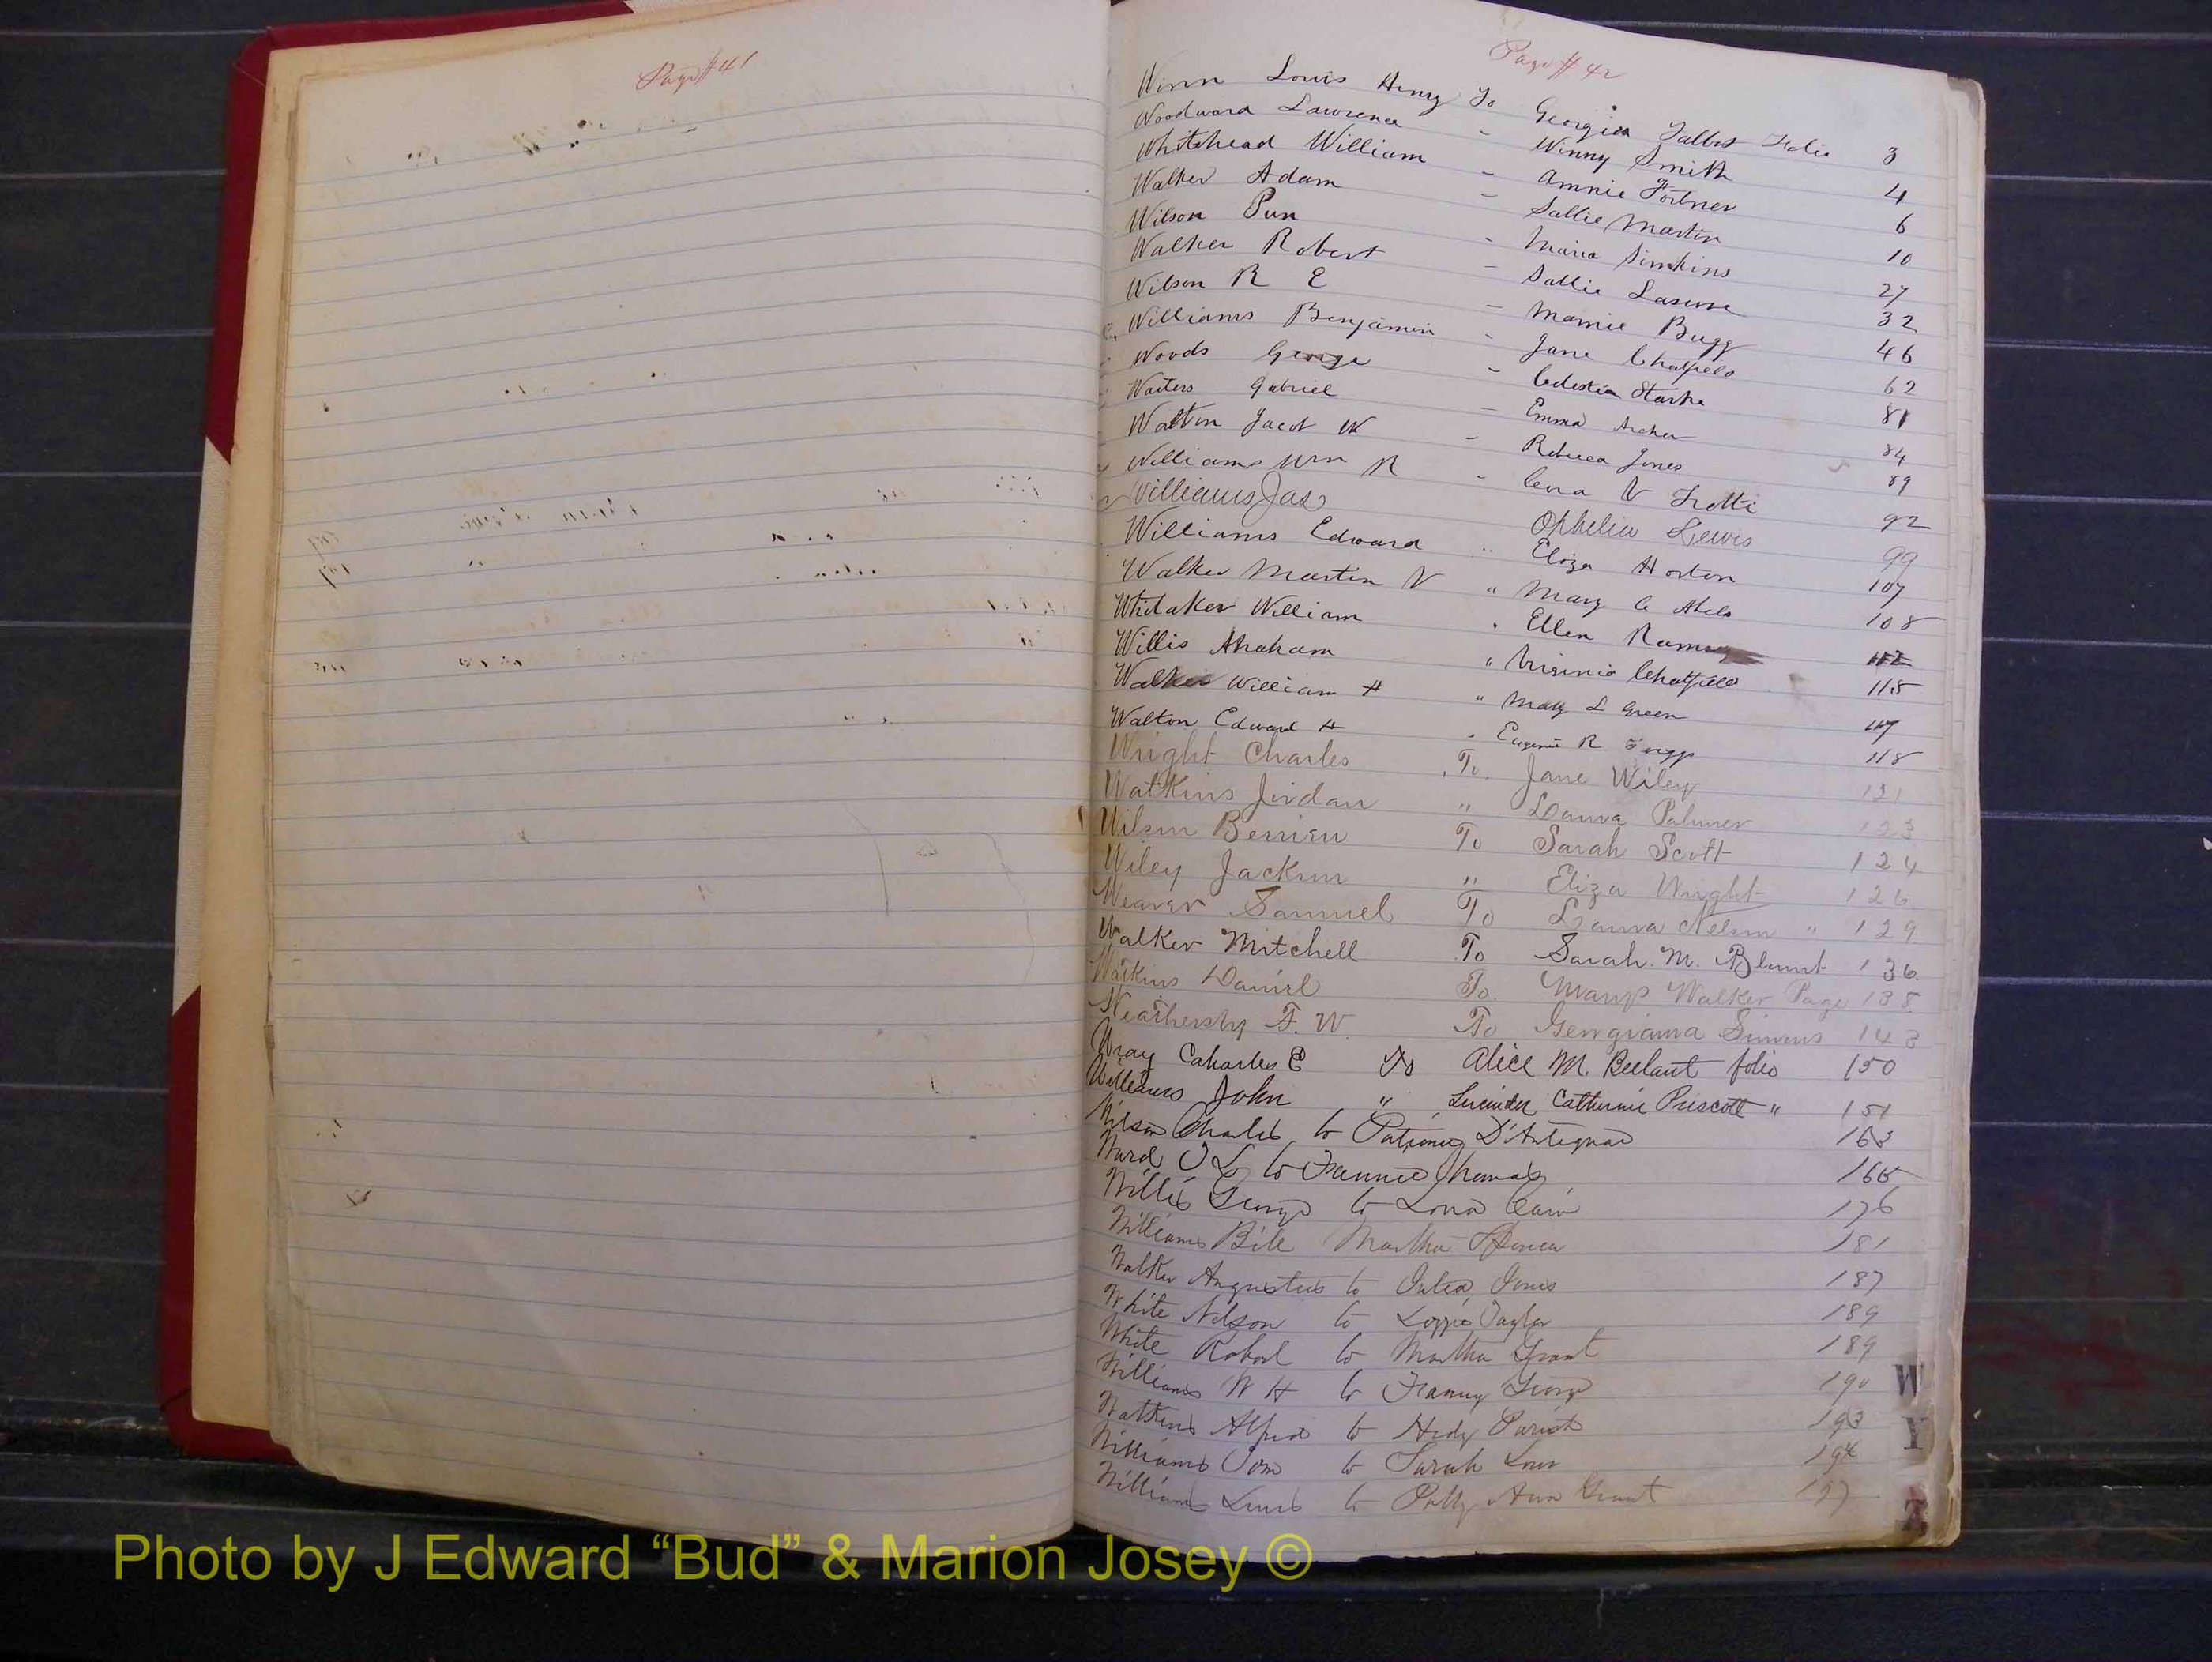 Page # 41
Page # 42
Winn Louis Henry To Georgia Talbot Folio 3
Woodward Lawrence - Winny Smith 4
Whitehead William - Annie Fortner 6
Walker Adam - Sallie Martin 10
Wilson Pun - Maria Simkins 27
Walker Robert - Sallie 32
Wilson R E - Mamie Bugg 46
Williams Benjamin - Jane Chatfield 62
Woods George - Celestia Starke 81
Waiters Gabriel - Emma Archer 84
Walton Jacob W - Rebecca Jones 89
Williams Wm R - Cena V Trotti 92
Williams Jas Ophelia Lewis 99
Williams Edward " Eliza Horton 107
Walker Martin V " Mary C 108
Whitaker William " Ellen Ramsey 112
Willis Abraham " Virginia Chatfield 115
Walker William H " Mary L Green 117
Walton Edward H " Eugenie R 118
Wright Charles To Jane Wiley 121
Watkins Jordan " Laura Palmer 123
Wilson Berrien To Sarah Scott 124
Wiley Jackson " Eliza Wright 126
Weaver Samuel To Laura Nelson " 129
Walker Mitchell To Sarah. M. Blount 136
Watkins Daniel To Mary Walker Page 138
Weathersby F. W. To Georgianna Simms 143
Wray Caharles E To Alice M. folio 150
Williams John " Lucinder Catherine Prescott " 151
Wilson Charles to D'Antignac 163
Ward J L to Fannie Thomas 165
Willis George to Lona Cain 176
Williams Bill Martha Spencer 181
Walker Augustus to Julia Jones 187
White Nelson to Taylor 189
White Robert to Martha Grant 189
Williams W H to Franny George 190
Watkins Alfred to Parish 193
Williams Tom to Sarah Low 194
Williams Louis to Polly Ann Grant 197
W
Y
Z
Photo by J Edward “Bud” & Marion Josey ©